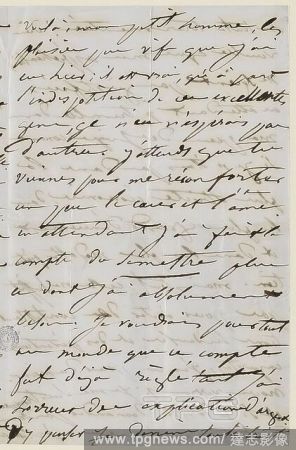 Voilà, mon petit homme, le
plaisir peu vif que j'ai
eu hier; il est vrai, qu'à part
l'indisposition de ces excellentes
gens, je n'en espérais pas
d'autres. J'attends que tu
viennes pour me réconforter
un peu le cœur et l'âme
en attendant j'ai fait le
compte du semestre
dont j'ai absolument
besoin. Je voudrais pour tout
au monde que ce compte
fut déjà réglé tant j'ai
horreur des explications d'argent
达志影像
www.tpgnews.com/達志影像